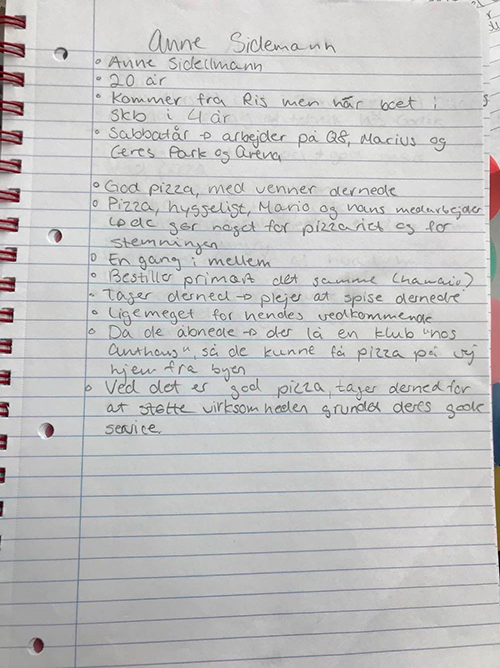 Anne Sidemann
◦ Anne Sidellmann
◦ 20 år
◦ Kommer fra Ris men har boet i
Skb i 4 år
◦ Sabbatår → arbejder på Q8, Marius og
Ceres Park og Arena
◦ God pizza, med venner dernede
◦ Pizza, hyggeligt, Mario og hans medarbejder
↳ de gør noget for pizzariet og for
stemningen
◦ En gang i mellem
◦ Bestiller primært det samme (hawaii)
◦ Tager derned → plejer at spise dernede
◦ Ligemeget for hendes vedkommende
◦ Da de åbnede → der lå en klub "hos
Anthons", så de kunne få pizza på vej
hjem fra byen
◦ Ved det er god pizza, tager derned for
at støtte virksomheden grundet deres gode
service.